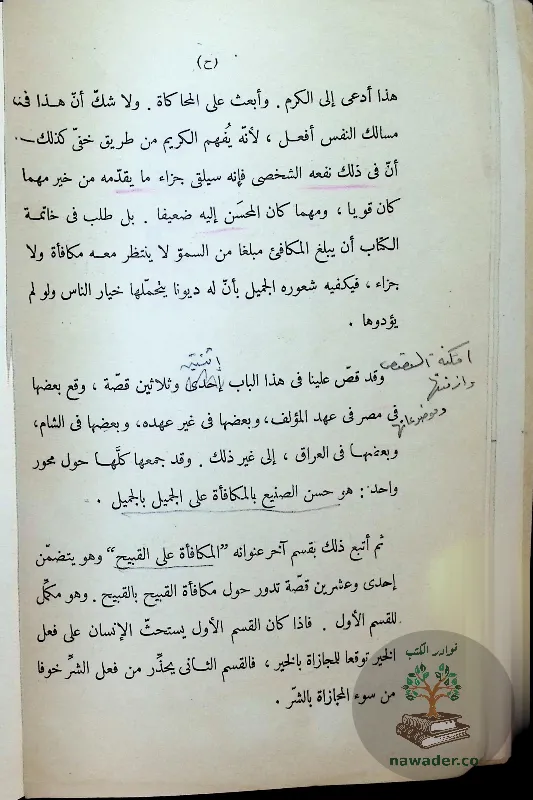 (ح)
هذا أدعى إلى الكرم . وأبعث على المحاكاة . ولا شكّ أنّ هذا فى
مسالك النفس أفعل ، لأنّه يُفهم الكريم من طريق خفىّ كذلك
أنّ فى ذلك نفعه الشخصى فإنه سيلقى جزاء ما يقدّمه من خير مهما
كان قويا ، ومهما كان المحسَن إليه ضعيفا . بل طلب فى خاتمة
الكتاب أن يبلغ المكافئ مبلغا من السموّ لا ينتظر معه مكافأة ولا
جزاء ، فيكفيه شعوره الجميل بأنّ له ديونا يتحمّلها خيار الناس ولو لم
يؤدوها .
امكنة القصص
وازمنتها
وموضوعاتها
اثنتين
وقد قصّ علينا فى هذا الباب إحدى وثلاثين قصّة ، وقع بعضها
فى مصر فى عهد المؤلف، وبعضها فى غير عهده، وبعضها فى الشام،
وبعضها فى العراق ، إلى غير ذلك . وقد جمعها كلَّها حول محور
واحد : هو حسن الصنيع بالمكافأة على الجميل بالجميل .
ثم أتبع ذلك بقسم آخر عنوانه "المكافأة على القبيح" وهو يتضمّن
إحدى وعشرين قصّة تدور حول مكافأة القبيح بالقبيح . وهو مكمِّل
للقسم الأول . فاذا كان القسم الأول يستحثّ الإنسان على فعل
الخير توقعا للمجازاة بالخير ، فالقسم الثانى يحذِّر من فعل الشرِّ خوفا
من سوء المجازاة بالشرّ .
نوادر الكتب
nawader.co